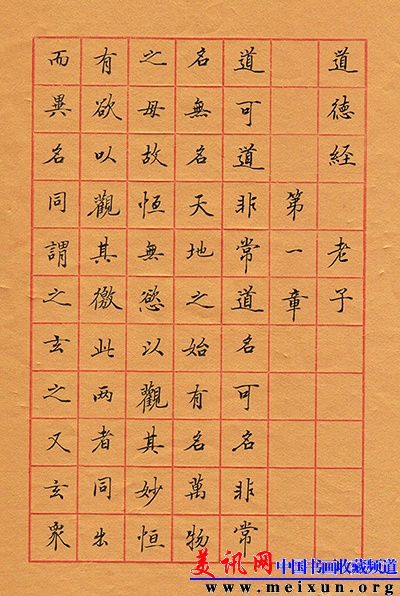 道德經 老子
第一章
道可道非常道名可名非常
名無名天地之始有名萬物
之母故恒無慾以觀其妙恒
有欲以觀其徼此两者同出
而異名同謂之玄之又玄衆
美讯网 中国书画收藏频道
www.meixun.org